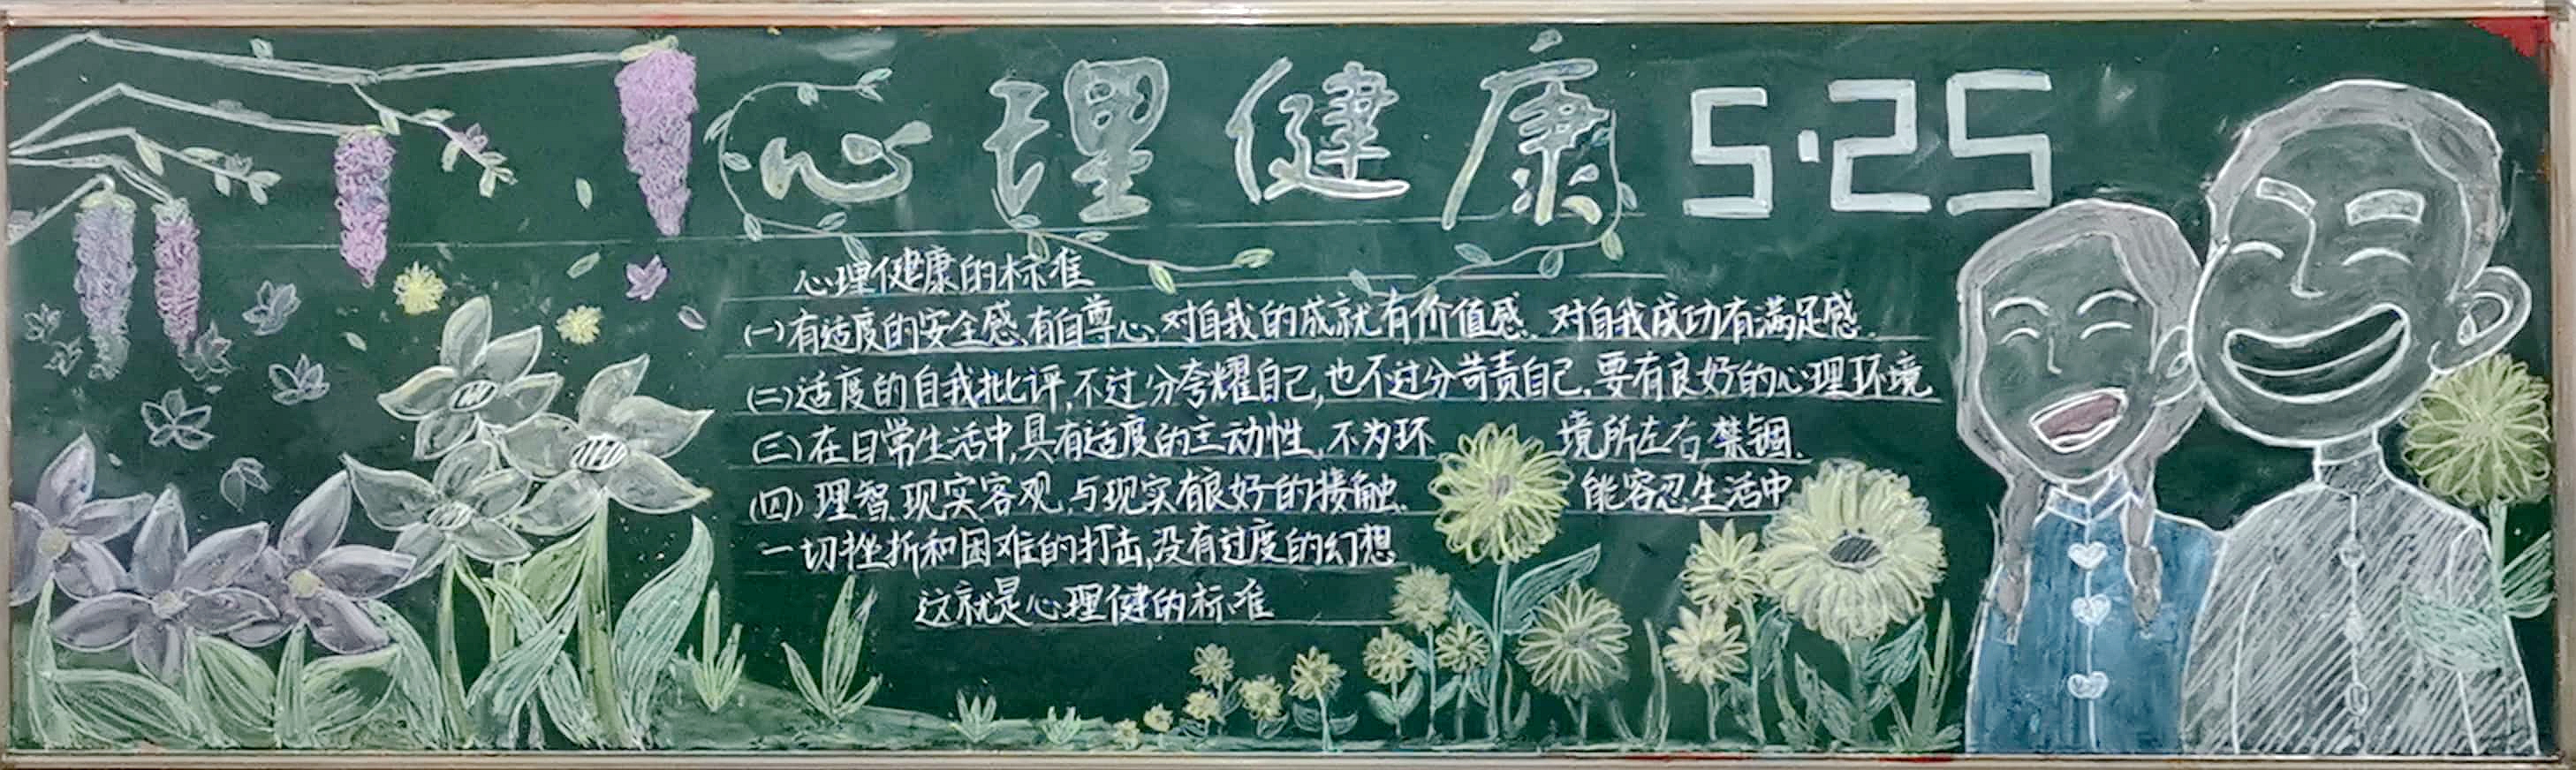 心理健康 5·25
心理健康的标准
(一)有适度的安全感,有自尊心,对自我的成就有价值感.对自我成功有满足感.
(二)适度的自我批评,不过分夸耀自己,也不过分苛责自己.要有良好的心理环境
(三)在日常生活中,具有适度的主动性,不为环境所左右禁锢.
(四)理智,现实客观,与现实有良好的接触.能容忍生活中
一切挫折和困难的打击,没有过度的幻想
这就是心理健的标准